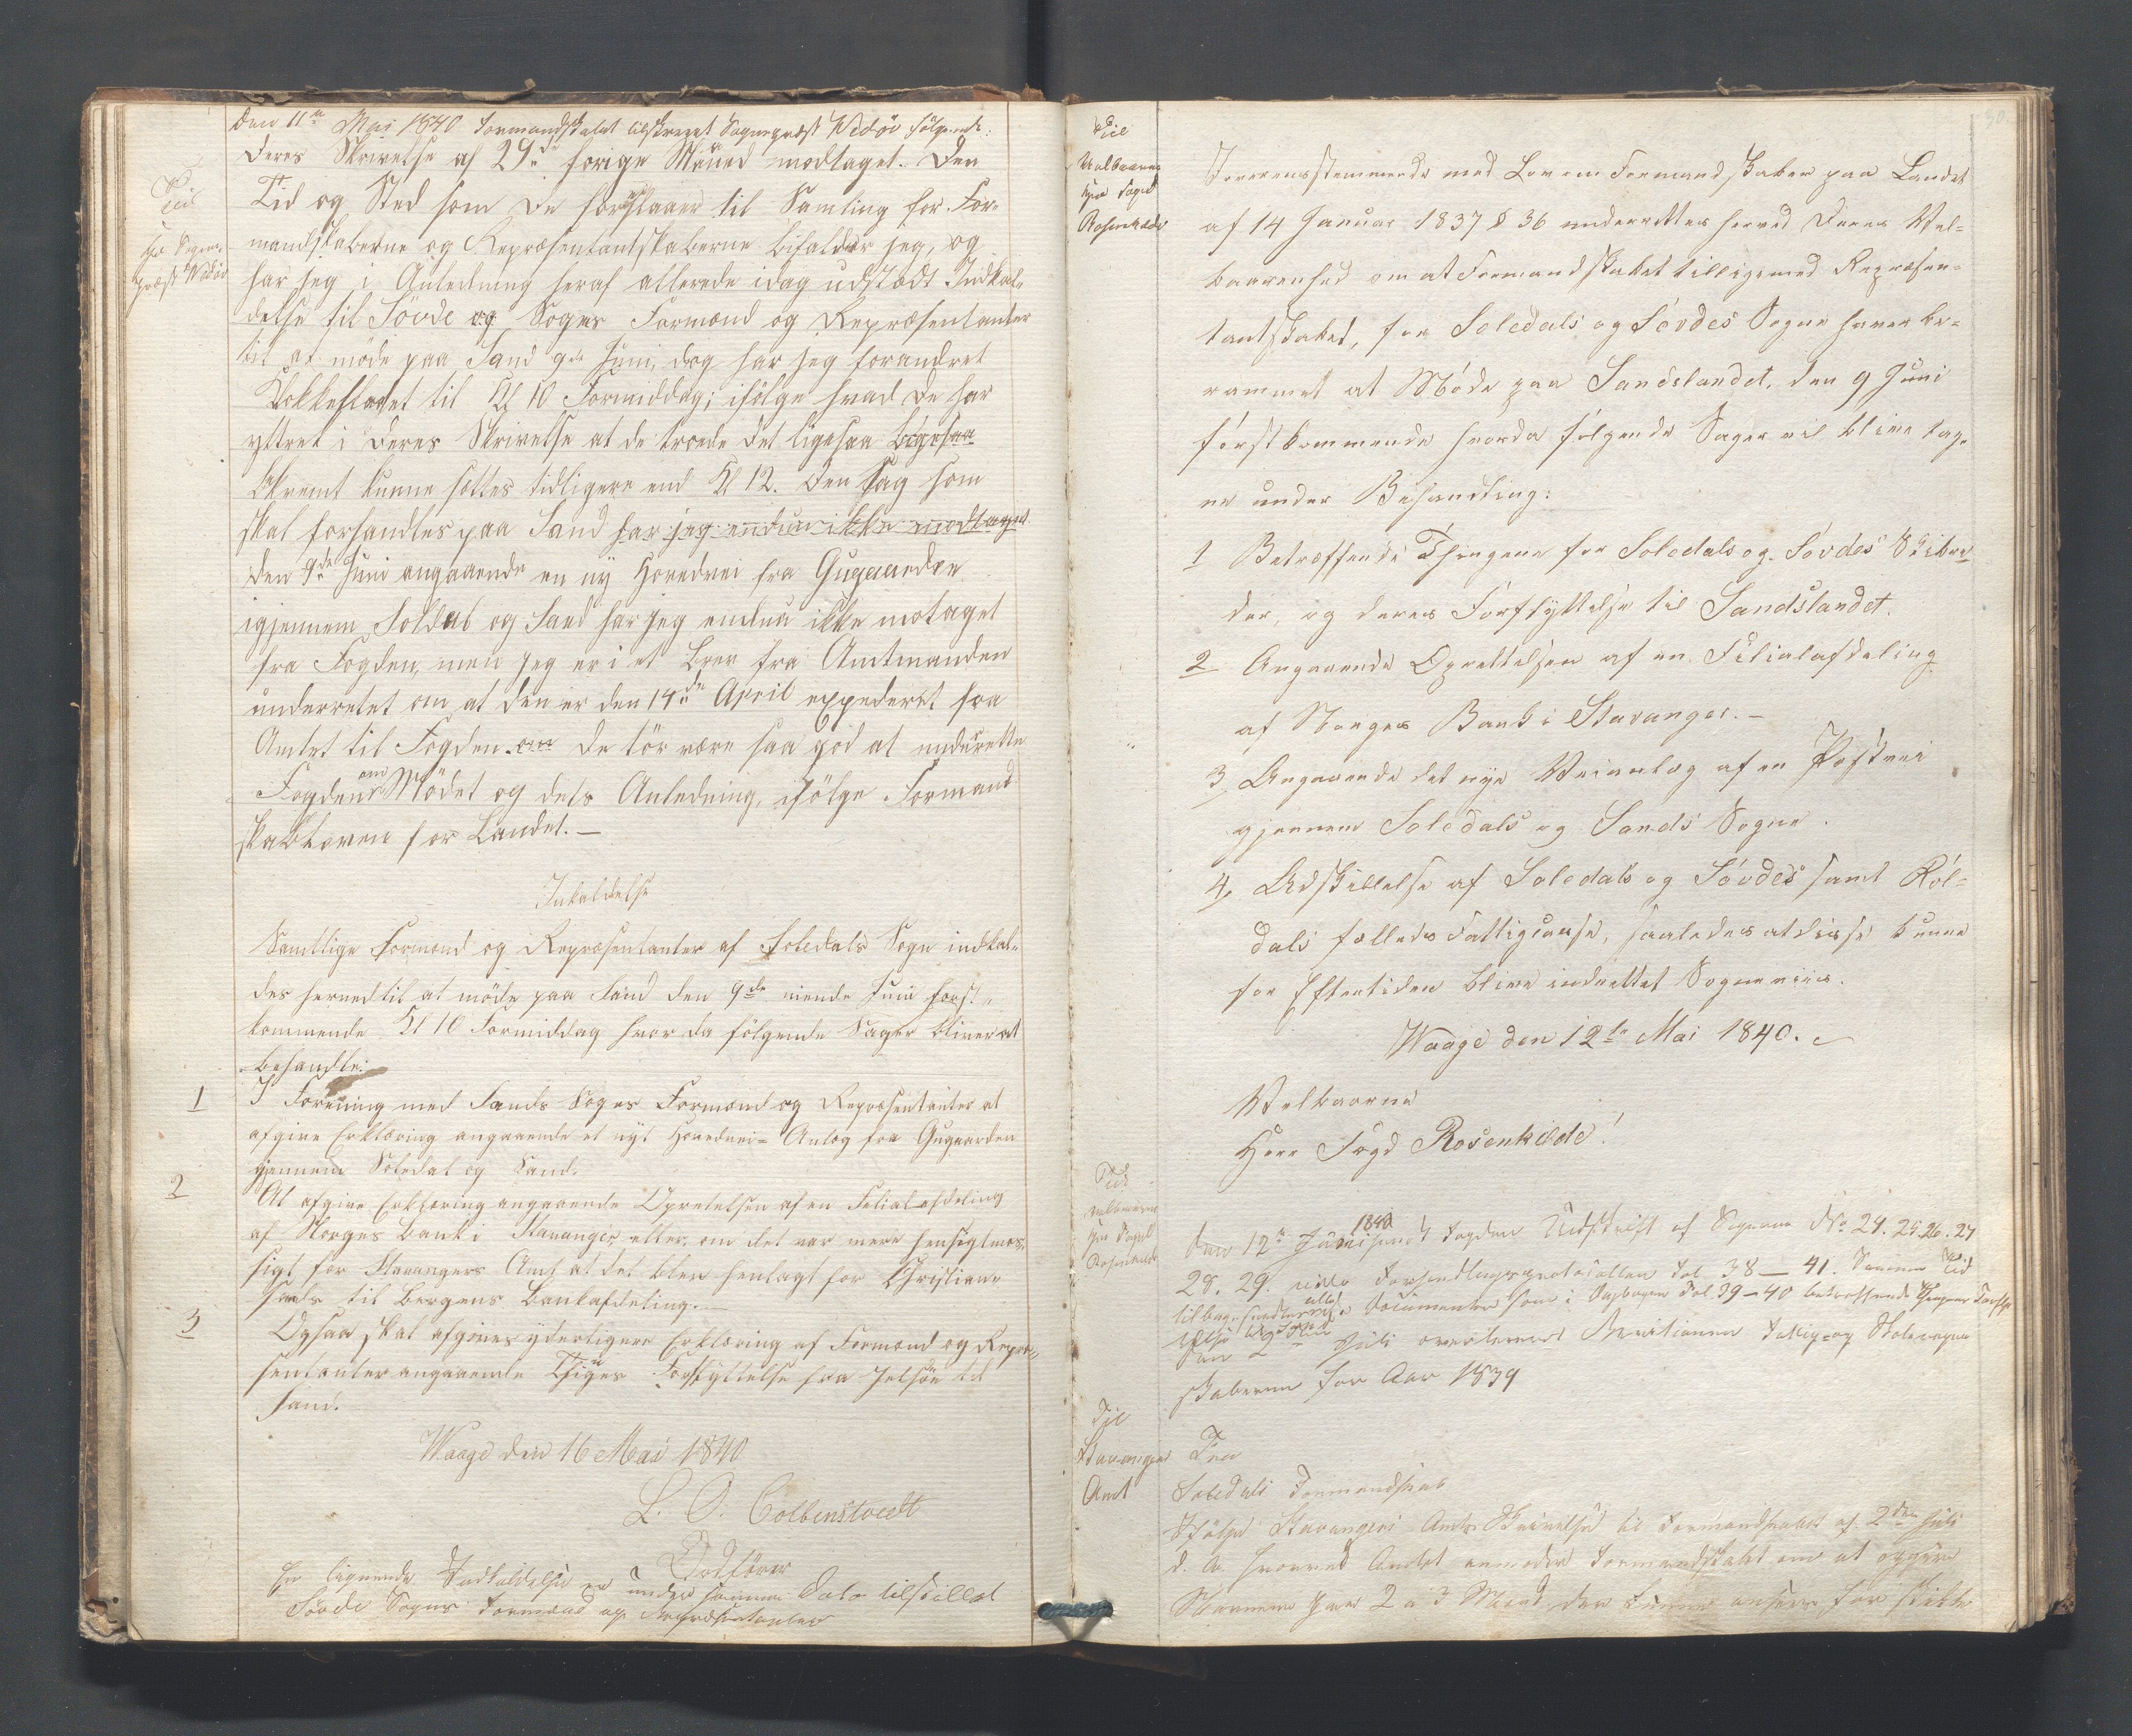 Den 11te Mai 1840 Formandskabet tilskrevet Sognepræst Widöe følgende:
Til
Hr Sogne-
præst Widöe
Deres Skrivelse af 29de forige Maaned modtaget. Den
Tid og Sted som De foreslaaer til Samling for For-
mandskaberne og Repræsentantskaberne bifalder jeg, og
har jeg i Anledning heraf allerede idag udstædt Indkal-
delse til Søvde og Sogns Formænd og Repræsentanter
til at møde paa Sand 9de Juni, dog har jeg forandret
Klokkeslættet til Kl 10 Formiddag; ifølge hvad De har
yttret i Deres Skrivelse at de troede det ligesaa ligesaa
bekvemt kunne sættes tidligere end Kl 12. Den Sag som
skal forhandles paa Sand har jeg endnu ikke modtaget
den 9de Juni angaaende en ny Hovedvei fra Gugaarden
igjennem Soldal og Sand har jeg endnu ikke motaget
fra Fogden, men jeg er i et Brev fra Amtmanden
underretet om at den er den 14de April expederet fra
Amtet til Fogden. om De tör være saa god at underrette
Fogden om Mödet og dets Anledning, ifölge Formand
skabsloven for Landet. —
Inkaldelse
Samtlige Formænd og Repræsentanter af Soledals Sogn indkal-
des herved til at möde paa Sand den 9de niende Juni först-
kommende Kl 10 Formiddag hvor da fölgende Sager bliver at
behandle:
1 I Forening med Sands Sogns Formænd og Repræsentanter at
afgive Erklæring angaaende et nyt Hovedvei-Anlæg fra Gugaarden
gjennem Soledal og Sand.
2 At afgive Erklæring angaaende Opretelsen af en Filial afdeling
af Norges Bank i Stavanger, eller om det var mere hensigtmæs-
sigt for Stavangers Amt at det blev henlagt for Christian-
sands til Bergens Bankafdeling. —
3 Ogsaa skal afgives yderligere Erklæring af Formænd og Repræ-
sentanter angaaende Thinges Forflyttelse fra Jelsöe til
Sand.
Waage den 16 Mai 1840
L. O. Colbenstvedt
Ordförer
En lignende Indkaldelse er under samme Dato tilstillet
Søvde Sogns Formænd og Repræsentanter
Til
Velbaarne
Hr Foged
Rosenkilde
Overensstemmende med Lov om Formandskaber paa Landet
af 14 Januar 1837 § 36 underrettes herved Deres Vel-
baarenhed om at Formandskabet tilligemed Repræsen-
tantskabet, for Soledals og Søvdes Sogne haver be-
rammet at Möde paa Sandslandet, den 9 Juni
förstkommende hvorda fölgende Sager vil blive tag-
ne under Behandling:
1 Betræffende Thingene for Soledals og Søvdes Skibre-
der, og deres Forflyttelse til Sandslandet.
2 Angaaende Oprettelsen af en Filialafdeling
af Norges Bank i Stavanger. —
3 Angaaende det nye Veianlæg af en Postvei
gjennem Soledals og Sands Sogne.
4. Adskillelse af Soledals og Søvdes samt Röl-
dals fælleds Fattigcasse, saaledes at disse kunne
for Eftertiden blive indrettet Sogneviis.
Waage den 12te Mai 1840.
Velbaarne
Herr Fogd Rosenkilde!
Til
velbaarne
Hr Foged
Rosenkilde
Den 12te Juni 1840 sendt Fogden Udskrift af Sagerne No 24. 25. 26. 27
28. 29. Forhandlingsprotocollen Fol 38 — 41. Samme Tid
tilbagesendt alle Documenter som i Dagbogen Fol 39–40 betreffende Thingenes Forfly-
telse til Sand
Den 2de Juli overleveret Revisionen Fattig- og Skoleregn-
skaberne for Aar 1839
Til
Stavanger
Amt
Fra
Soledals Formandskab
Ifölge Stavangers Amts Skrivelse til Formandskabet af 2den Juli
d. A. hvorved Amtet anmoder Formandskabet om at opgive
Navnene paa 2 á 3 Mænd der kunne ansees for skikke